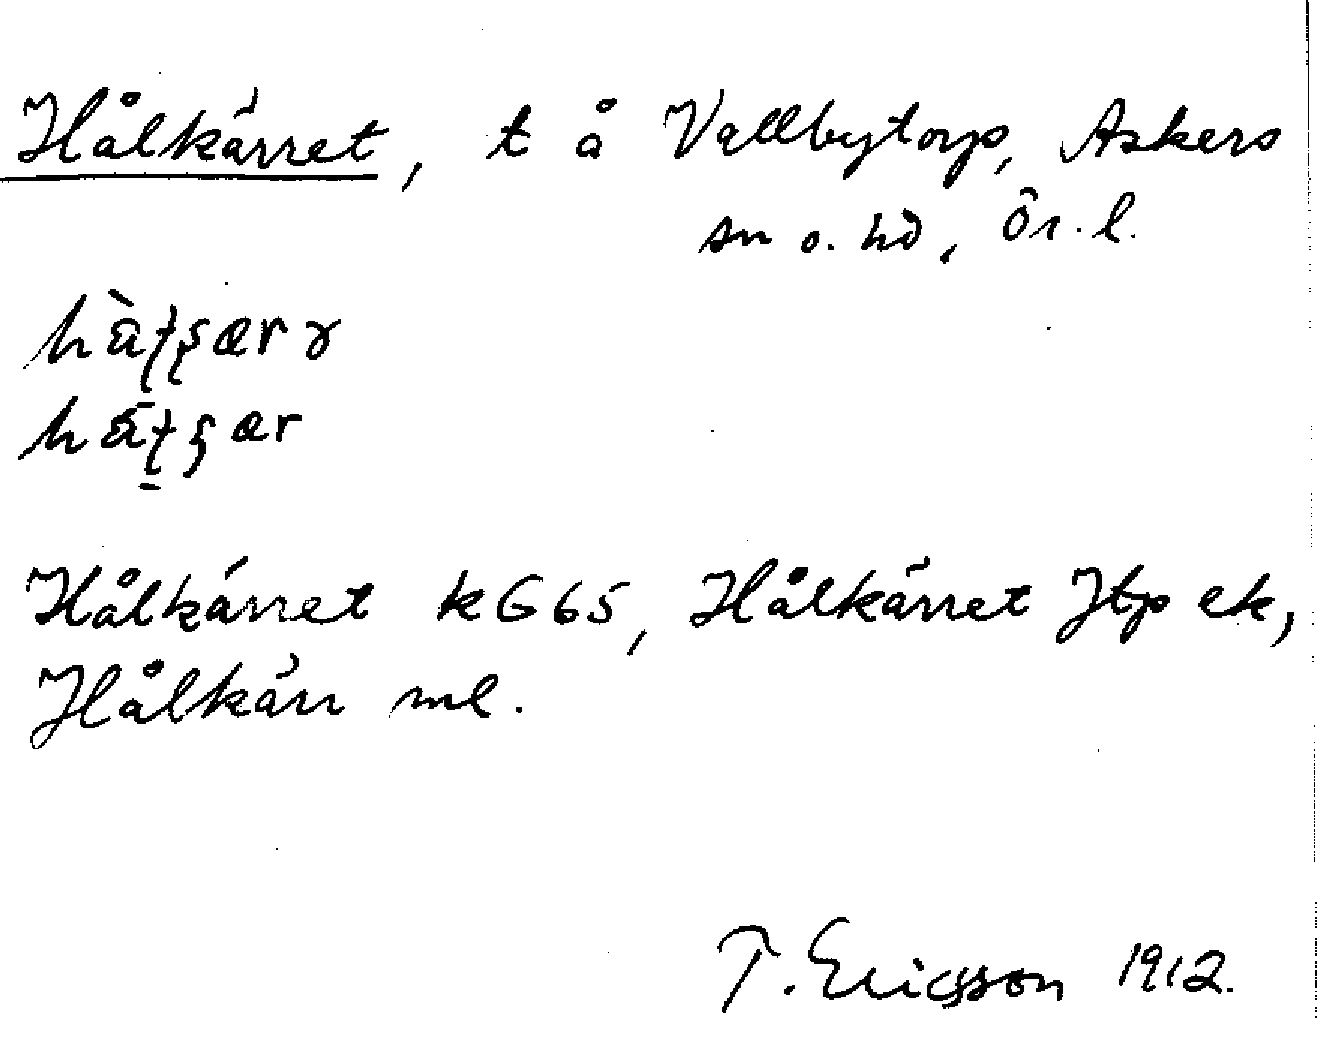 Hålkärret, t å Vallbytorp, Askers
sn o. hd, Ör. l.
Hålkärret kG65, Hålkärret Jtp ek,
Hålkärr ml.
T. Ericsson 1912.